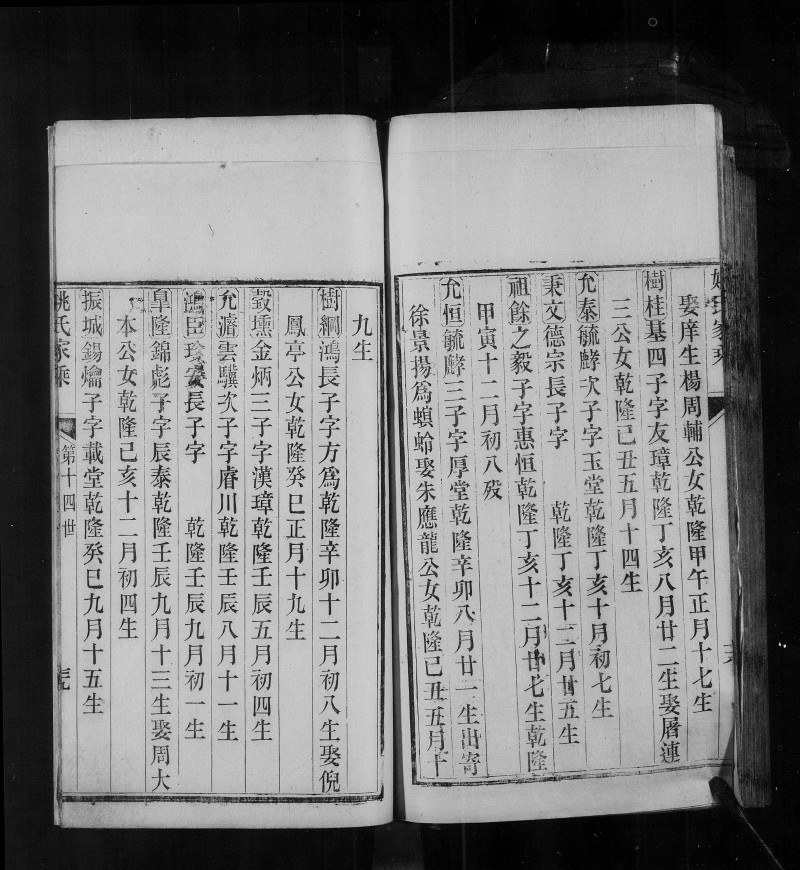 娶庠生楊周輔公女乾隆甲午正月十七生
樹桂基四子字友璋乾隆丁亥八月廿二生娶屠連
三公女乾隆己丑五月十四生
允泰毓麟次子字玉堂乾隆丁亥十月初七生
秉文德宗長子字 乾隆丁亥十二月廿五生
祖餘之毅子字惠恒乾隆丁亥十二月廿七生乾隆
甲寅十二月初八歿
允恒毓麟三子字厚堂乾隆辛卯八月廿一生出寄
徐景揚爲螟蛉娶朱應龍公女乾隆己丑五月十
九生
樹綱鴻長子字方爲乾隆辛卯十二月初八生娶倪
鳳亭公女乾隆癸巳正月十九生
瑴壎金炳三子字漢璋乾隆壬辰五月初四生
允濬雲驥次子字睿川乾隆壬辰八月十一生
鴻臣珍安長子字 乾隆壬辰九月初一生
皇隆錦彪子字辰泰乾隆壬辰九月十三生娶周大
本公女乾隆己亥十二月初四生
振城錫爚子字載堂乾隆癸巳九月十五生
姚氏家乘 第十四世